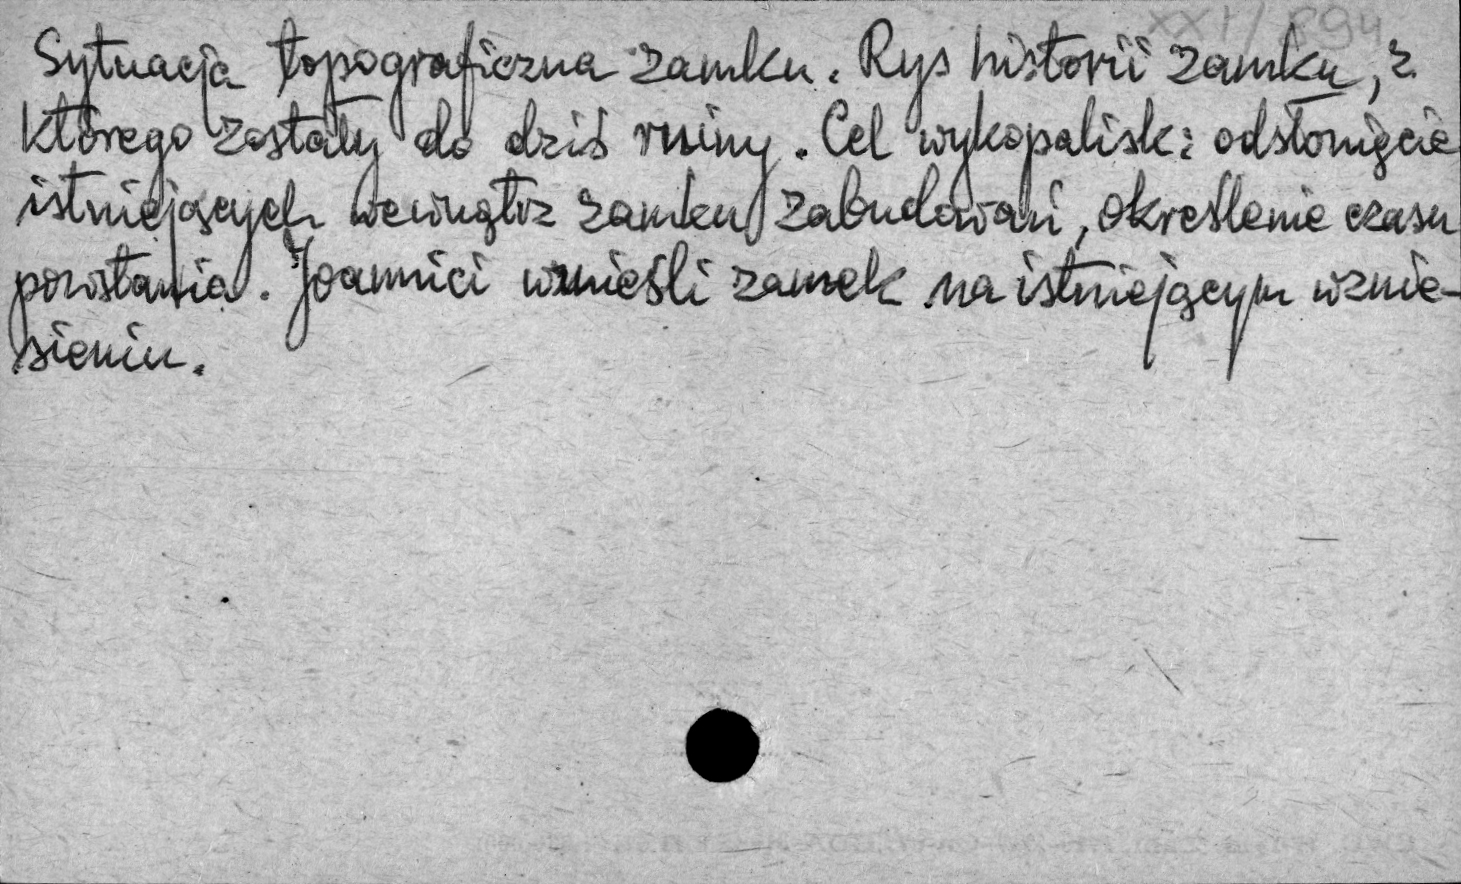 XXI/894
Sytuacja topograficzna zamku. Rys historii zamku, z
którego zostały do dziś ruiny. Cel wykopalisk: odsłonięcie
istniejących wewnątrz zamku zabudowań, określenie czasu
powstania. Joannici wznieśli zamek na istniejącym wznie-
sieniu.